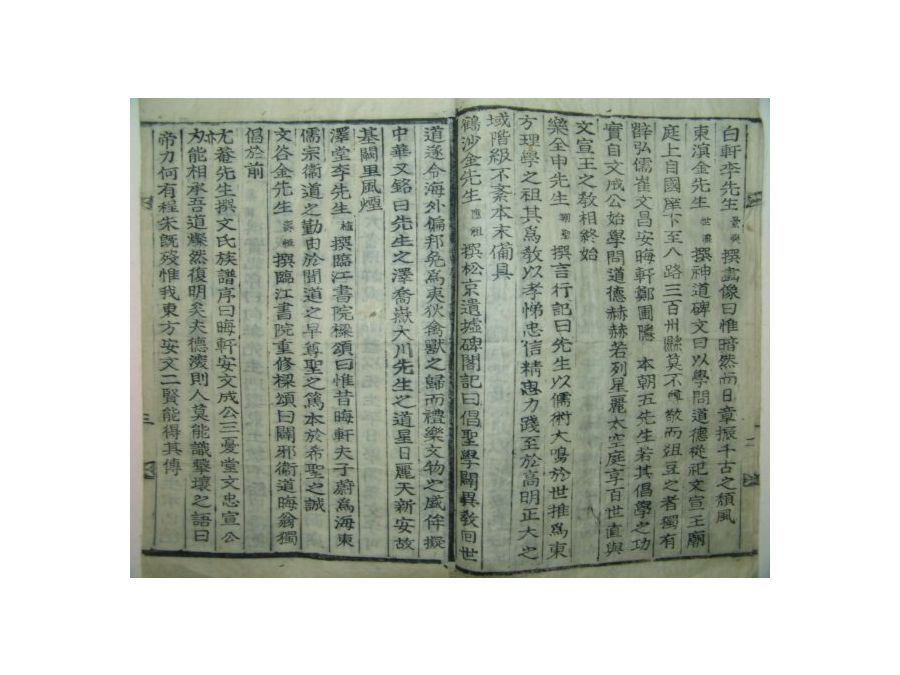 白軒李先生 景奭 撰畵像曰惟暗然而日章振千古之頹風
東溟金先生 世濂 撰神道碑文曰以學問道德從祀文宣王廟
庭上自國庠下至八路三百州縣莫不尊敬而俎豆之者獨有
薛弘儒崔文昌安晦軒鄭圃隱 本朝五先生若其倡學之功
實自文成公始學問道德赫赫若列星麗太空庭享百世直與
文宣王之敎相終始
樂全申先生 翊聖 撰言行記曰先生以儒術大鳴於世推爲東
方理學之祖其爲敎以孝悌忠信精思力踐至於高明正大之
域階級不紊本末備具
鶴沙金先生 應祖 撰松京遺墟碑閣記曰倡聖學闢異敎回世
道遂令海外偏邦免爲夷狄禽獸之歸而禮樂文物之盛侔擬
中華又銘曰先生之澤喬嶽大川先生之道星日麗天新安故
基闕里風煙
澤堂李先生 植 撰臨江書院樑頌曰惟昔晦軒夫子蔚爲海東
儒宗衛道之勤由於聞道之早尊聖之篤本於希聖之誠
文谷金先生 壽恒 撰臨江書院重修樑頌曰闢邪衛道晦翁獨
倡於前
尤菴先生撰文氏族譜序曰晦軒安文成公三憂堂文忠宣公
亦爲能相承吾道燦然復明矣夫德邃則人莫能識擊壤之語曰
帝力何有程朱旣殘惟我東方安文二賢能得其傳
二
三